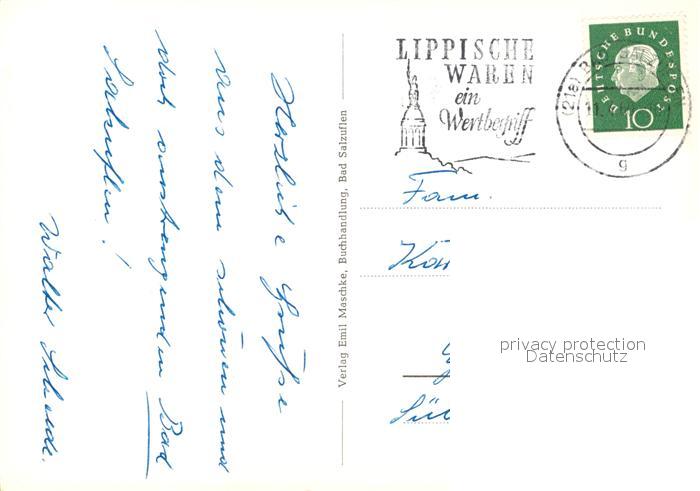 Herzliche Grüße
aus dem schönen und
doch anstrengenden Bad
Salzuflen!
Walter
Verlag Emil Maschke, Buchhandlung, Bad Salzuflen
LIPPISCHE
WAREN
ein
Wertbegriff
DEUTSCHE BUNDESPOST
10
(21a)
g
Fam.
privacy protection
Datenschutz